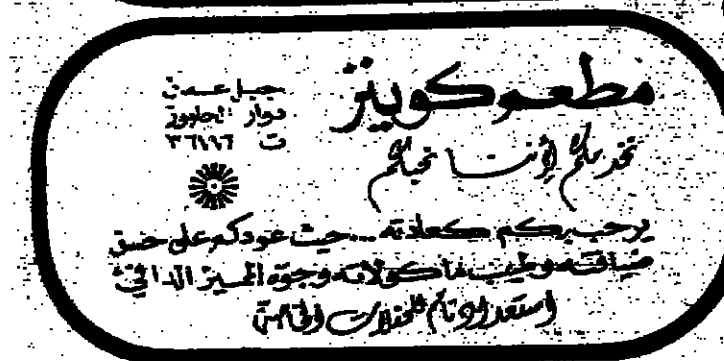 مطعم كوينز
جبل عمان
دوار
ت ٣٦١٩٦
نخدمكم لأننا نحبكم
يرحب بكم كعادته ... حيث عودكم على حسن
ضيافته وطيب مأكولاته وجوه المميز الدافئ
استعداد تام للحفلات الخاصة